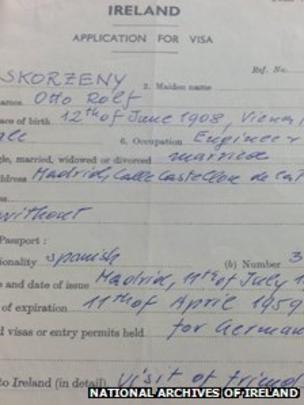 IRELAND
APPLICATION FOR VISA
Ref. No.
SKORZENY 2. Maiden name
ames Otto Rolf
ace of birth 12th of June 1908, Vienna
ale 6. Occupation Engineer
gle, married, widowed or divorced married
ddress Madrid, Calle Castellon de la
ss
without
Passport :
ionality spanish (b) Number 3
e and date of issue Madrid, 11th of July 1
of expiration 11th of April 1959
d visas or entry permits held for German
to Ireland (in detail) visit of friend
NATIONAL ARCHIVES OF IRELAND